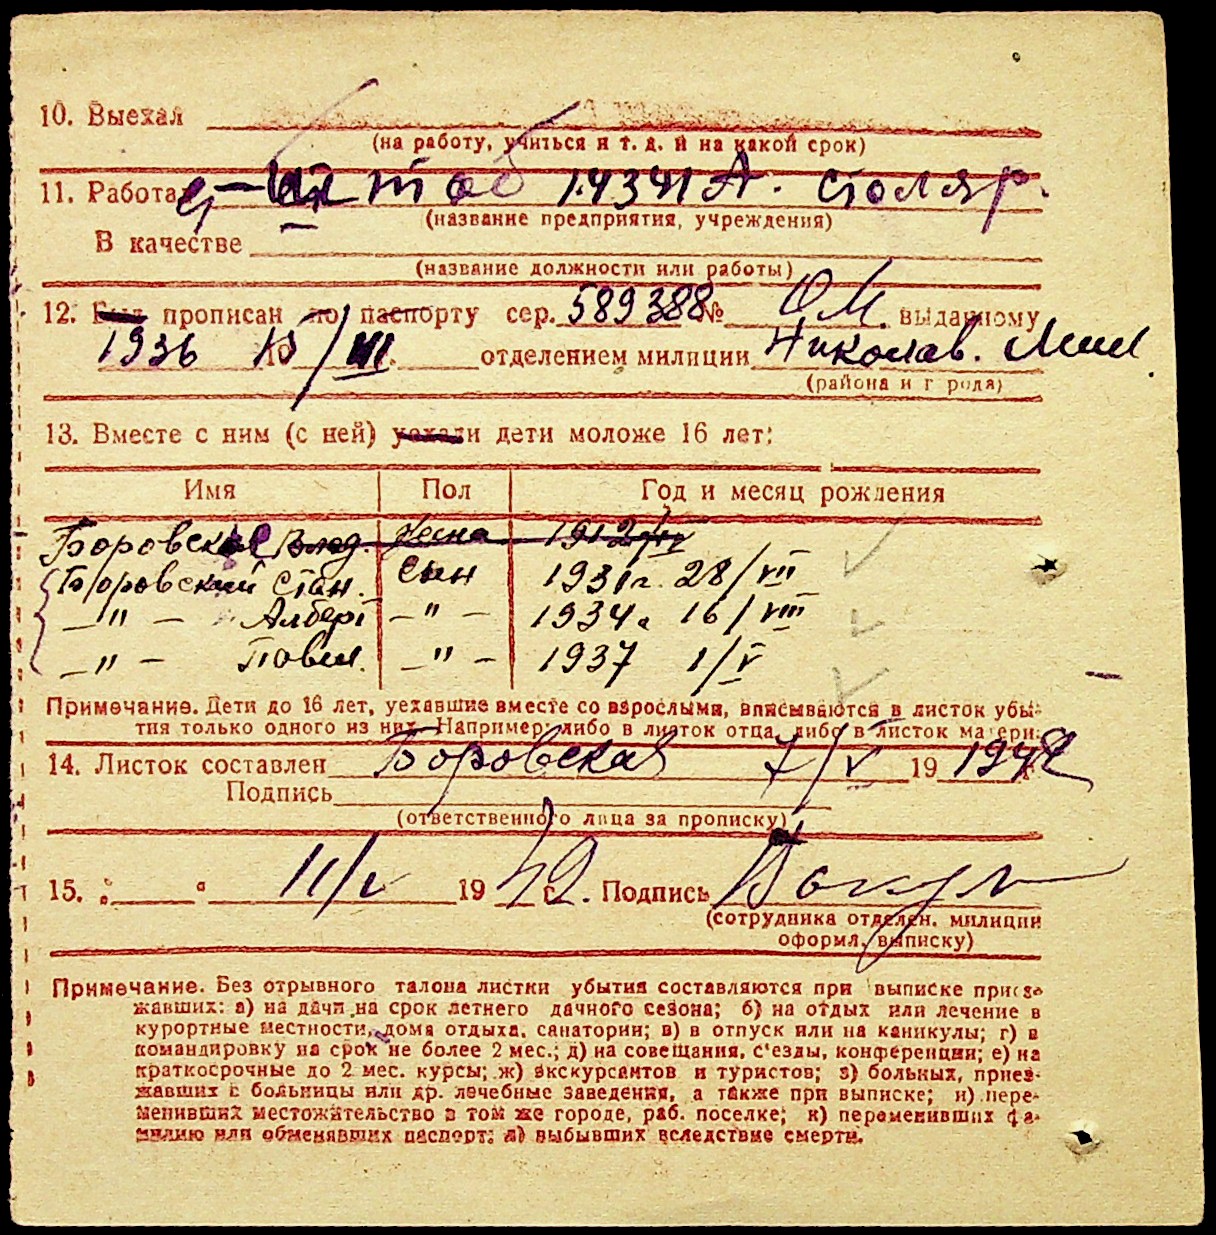 10. Выехал
(на работу, учиться и т. д. и на какой срок)
11. Работал штаб 14341 А. столяр.
(название предприятия, учреждения)
В качестве
(название должности или работы)
12. Был прописан по паспорту сер. 589388 № ОМ. выданному
1936 15/III. отделением милиции Николаев.
(района и города)
13. Вместе с ним (с ней) уехали дети моложе 16 лет:
Имя Пол Год и месяц рождения
Боровская Влад. жена 1912/IV
Боровский Стан. сын 1931 г. 28/VII
—"— Альберт —"— 1934 г. 16/VIII
—"— Павел. —"— 1937 1/V
Примечание. Дети до 16 лет, уехавшие вместе со взрослыми, вписываются в листок убы-
тия только одного из них. Например: либо в листок отца, либо в листок матери.
14. Листок составлен Боровская 7/V 19 1942 г.
Подпись
(ответственного лица за прописку)
15. „ “ 11/V 19 42 г. Подпись
(сотрудника отделен. милиции
оформл. выписку)
Примечание. Без отрывного талона листки убытия составляются при выписке приез-
жавших: а) на дачи на срок летнего дачного сезона; б) на отдых или лечение в
курортные местности, дома отдыха, санатории; в) в отпуск или на каникулы; г) в
командировку на срок не более 2 мес.; д) на совещания, с'езды, конференции; е) на
краткосрочные до 2 мес. курсы; ж) экскурсантов и туристов; з) больных, приез-
жавших в больницы или др. лечебные заведения, а также при выписке; и) пере-
менивших местожительство в том же городе, раб. поселке; к) переменивших фа-
милию или обменявших паспорт; л) выбывших вследствие смерти.